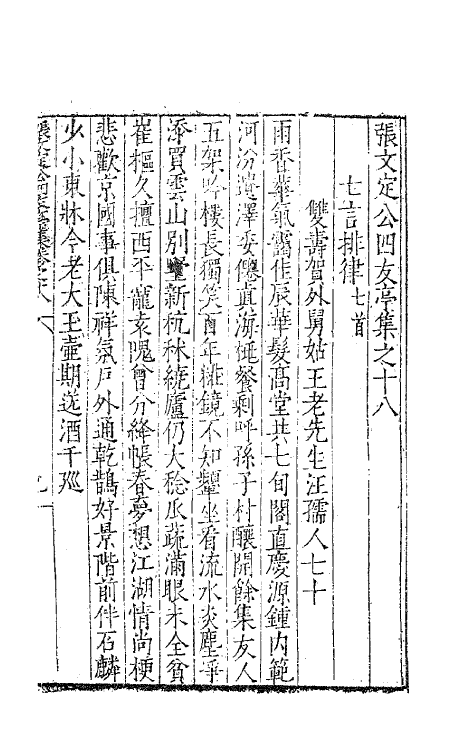 張文定公四友亭集之十八
七言排律七首
雙壽賀外舅姑王老先生汪孺人七十
雨香華氣靄佳辰華髮高堂共七旬閣直慶源鍾內範
河汾遺澤委儒真海僊餐剩呼孫子村釀開餘集友人
五架吟樓長獨笑百年粧鏡不知顰坐看流水炎塵爭
添買雲山別墅新杭秫繞廬仍大稔瓜蔬滿眼未全貧
崔樞久擅西平寵袁隗曾分絳帳春夢想江湖情尚梗
悲歡京國事俱陳祥氛戶外通乾鵲好景階前伴石麟
少小東牀今老大玉壺期送酒千巡